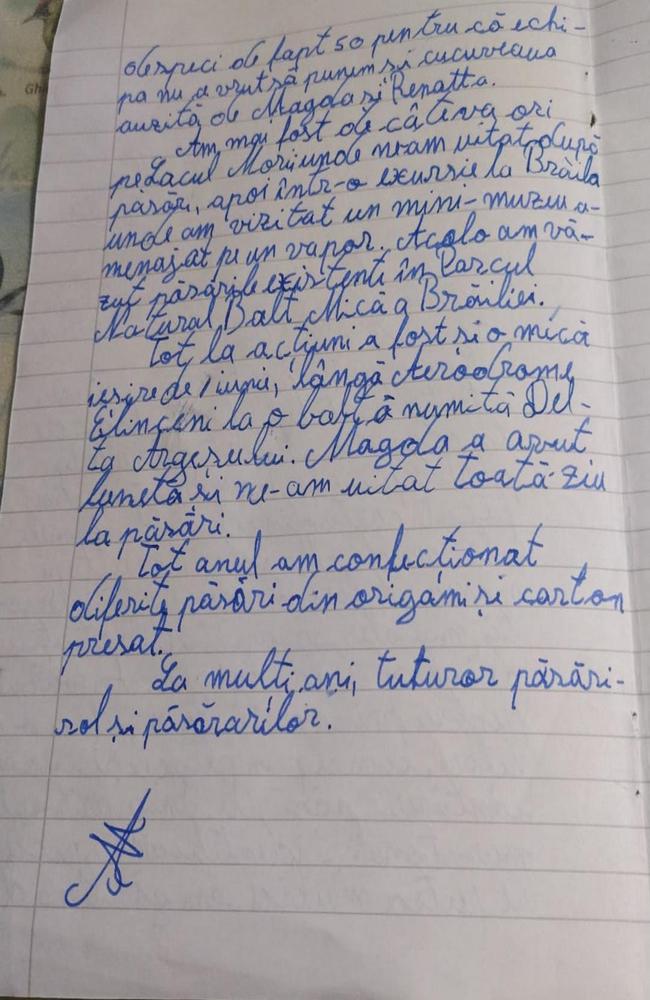 despeci de fapt 50 pentru că echi-
pa nu a vrut să punem și cucuveaua
auzită de Magda și Renatta.
Am mai fost de câteva ori
pe Lacul Morii unde ne-am uitat după
păsări, apoi într-o excursie la Brăila
unde am vizitat un mini-muzeu a-
menajat pe un vapor. Acolo am vă-
zut păsările existenti în Parcul
Natural Balt Mică a Brăiliei.
Tot la acțiuni a fost și o mică
ieșire de 1 iunie, lângă Aerodromu
Clinceni la o baltă numită Del-
ta Argeșului. Magda a avut
lunetă și ne-am uitat toată ziu
la păsări.
Tot anul am confecționat
diferite păsări din origami și carton
presat.
La mulți ani, tuturor păsări-
lol și păsărarilor.